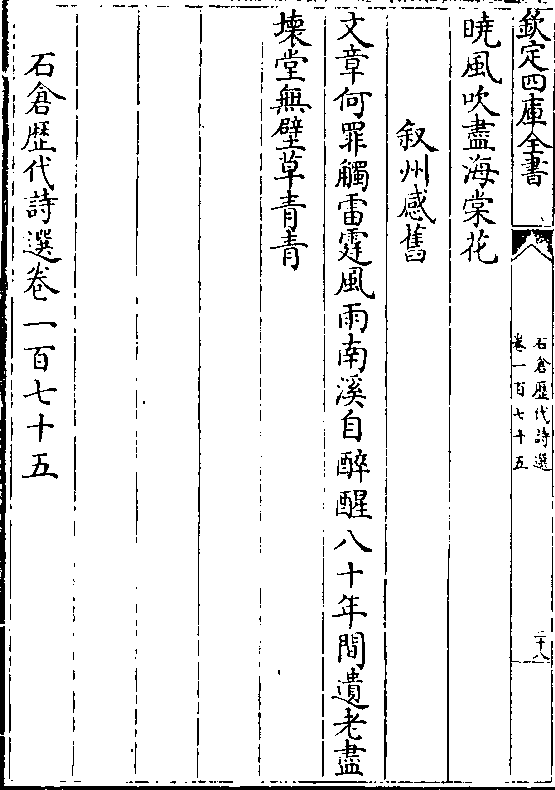 欽定四庫全書
石倉歷代詩選
卷一百七十五
二十八
曉風吹盡海棠花
叙州感舊
文章何罪觸雷霆風雨南溪自醉醒八十年間遺老盡
壊堂無壁草青青
石倉歷代詩選卷一百七十五